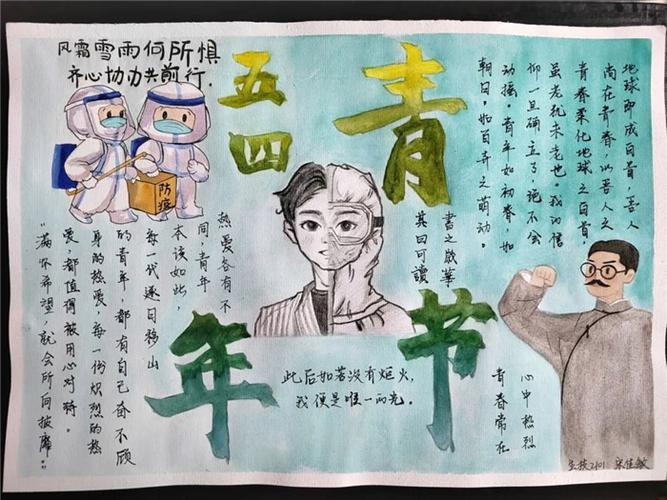 风霜雪雨何所惧
齐心协力共前行.
五四
青年节
防疫
地球即成白首，吾人
尚在青春，以吾人之
青春柔化地球之白首，
虽老犹未老也。我的信
仰一旦确立了，绝不会
动摇。青年如初春，如
朝日，如百卉之萌动。
書之歲華
其曰可讀
热爱各有不
同，青年
本该如此，
每一代逐日移山
的青年，都有自己奋不顾
身的热爱。每一份炽烈的热
爱，都值得被用心对待。
“满怀希望，就会所向披靡。”
此后如若没有炬火，
我便是唯一的光。
心中热烈
青春常在